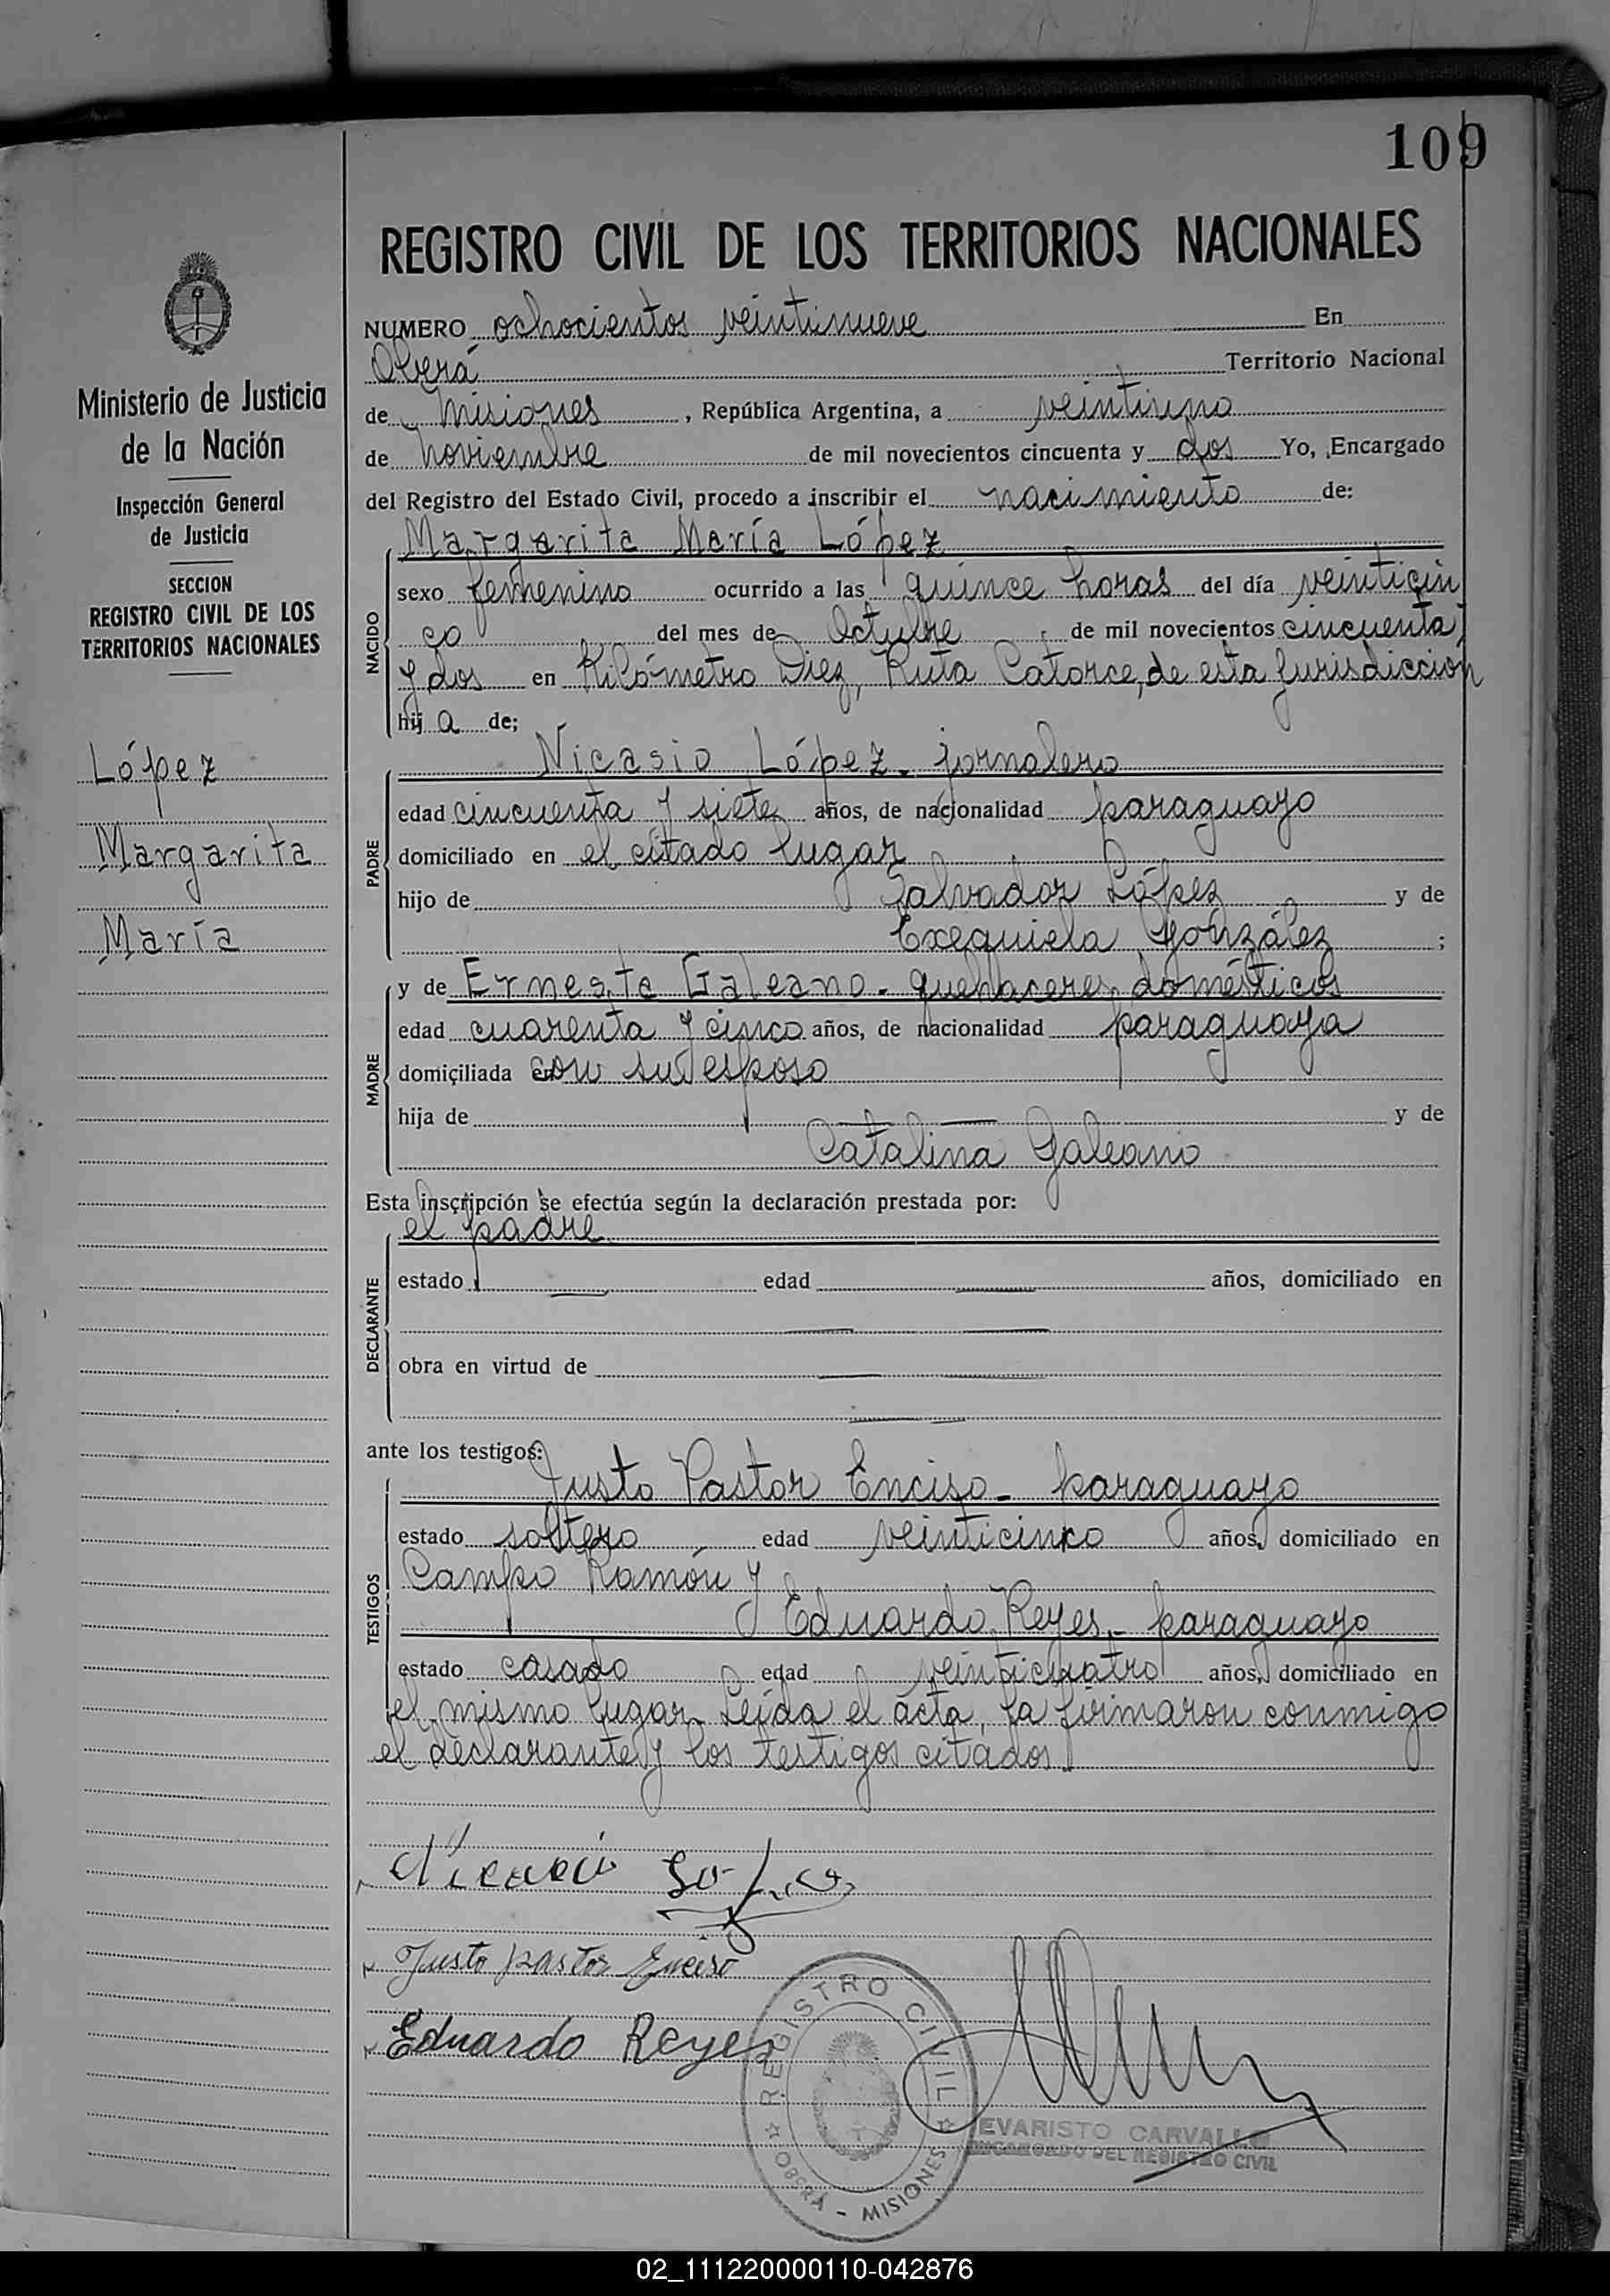 109
REGISTRO CIVIL DE LOS TERRITORIOS NACIONALES
Ministerio de Justicia
de la Nación
Inspección General
de Justicia
SECCION
REGISTRO CIVIL DE LOS
TERRITORIOS NACIONALES
López
Margarita
María
NUMERO ochocientos veintinueve En
Oberá Territorio Nacional
de Misiones, República Argentina, a veintiuno
de noviembre de mil novecientos cincuenta y dos Yo, Encargado
del Registro del Estado Civil, procedo a inscribir el nacimiento de:
NACIDO
Margarita María López
sexo femenino ocurrido a las quince horas del día veinticin
co del mes de Octubre de mil novecientos cincuenta
y dos en Kilómetro Diez, Ruta Catorce, de esta jurisdicción
hija de;
PADRE
Nicasio López - jornalero
edad cincuenta y siete años, de nacionalidad paraguayo
domiciliado en el citado lugar
hijo de Salvador López y de
Exequiela González ;
MADRE
y de Ernesta Galeano - quehaceres domésticos
edad cuarenta y cinco años, de nacionalidad paraguaya
domiciliada en con su esposo
hija de — — y de
Catalina Galeano
Esta inscripción se efectúa según la declaración prestada por:
DECLARANTE
el padre
estado — edad — años, domiciliado en
— —
obra en virtud de — —
— —
ante los testigos:
TESTIGOS
Justo Pastor Enciso - paraguayo
estado soltero edad veinticinco años, domiciliado en
Campo Ramón y
Eduardo Reyes - paraguayo
estado casado edad veinticuatro años, domiciliado en
el mismo lugar. Leída el acta, la firmaron conmigo
el declarante y los testigos citados.
Justo pastor Enciso
Eduardo Reyes
REGISTRO CIVIL
OBERA - MISIONES
EVARISTO CARVALLO
ENCARGADO DEL REGISTRO CIVIL
02_111220000110-042876